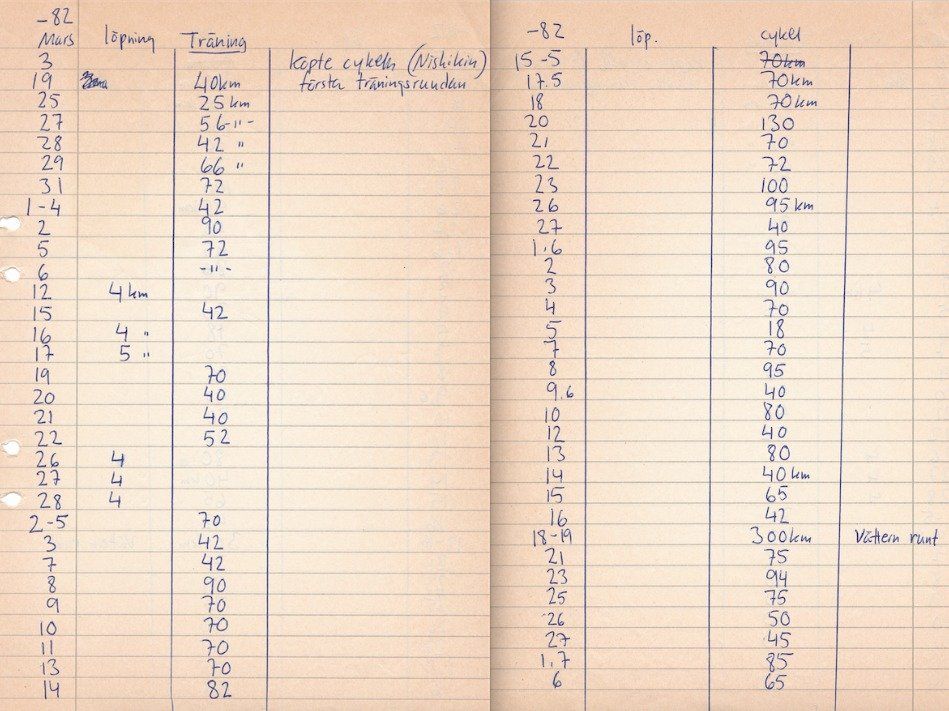 -82
Mars löpning Träning
3 köpte cykeln (Nishikin)
19 40km första träningsrundan
25 25 km
27 56 -"-
28 42 "
29 66 "
31 72
1-4 42
2 90
5 72
6 -"-
12 4 km
15 42
16 4 "
17 5 "
19 70
20 40
21 40
22 52
26 4
27 4
28 4
2-5 70
3 42
7 42
8 90
9 70
10 70
11 70
13 70
14 82
-82 löp. cykel
15-5 70km
17.5 70km
18 70km
20 130
21 70
22 72
23 100
26 95 km
27 40
1.6 95
2 80
3 90
4 70
5 18
7 70
8 95
9.6 40
10 80
12 40
13 80
14 40 km
15 65
16 42
18-19 300 km Vättern runt
21 75
23 94
25 75
26 50
27 45
1.7 85
6 65